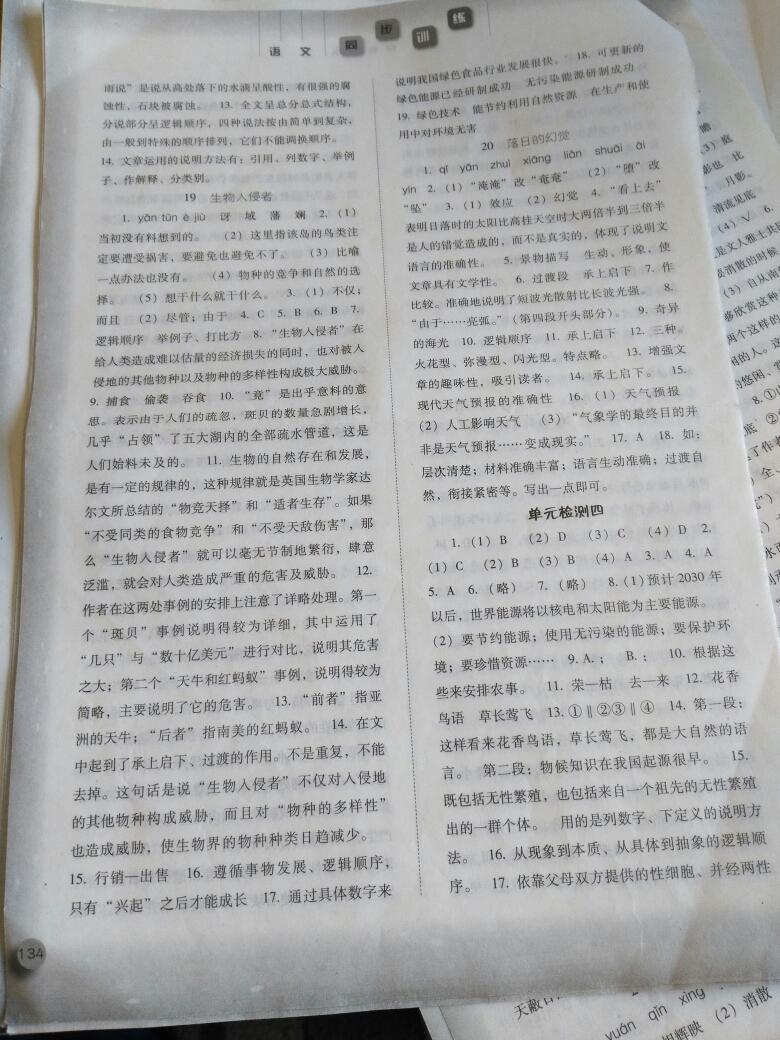 语 文 同 步 训 练
雨说”是说从高处落下的水滴呈酸性，有很强的腐
蚀性，石块被腐蚀。 13. 全文呈总分总式结构，
分说部分呈逻辑顺序，四种说法按由简单到复杂，
由一般到特殊的顺序排列，它们不能调换顺序。
14. 文章运用的说明方法有：引用、列数字、举例
子、作解释、分类别。
19 生物入侵者
1. yān tūn è jiù 讶 域 藩 斓 2.（1）
当初没有料想到的。 （2）这里指该岛的鸟类注
定要遭受祸害，要避免也避免不了。 （3）比喻
一点办法也没有。 （4）物种的竞争和自然的选
择。 （5）想干什么就干什么。 3.（1）不仅；
而且 （2）尽管；由于 4. C 5. B 6. B 7.
逻辑顺序 举例子、打比方 8. “生物入侵者”在
给人类造成难以估量的经济损失的同时，也对被入
侵地的其他物种以及物种的多样性构成极大威胁。
9. 捕食 偷袭 吞食 10. “竟”是出乎意料的意
思。表示由于人们的疏忽，斑贝的数量急剧增长，
几乎“占领”了五大湖内的全部疏水管道，这是
人们始料未及的。 11. 生物的自然存在和发展，
是有一定的规律的，这种规律就是英国生物学家达
尔文所总结的“物竞天择”和“适者生存”。如果
“不受同类的食物竞争”和“不受天敌伤害”，那
么“生物入侵者”就可以毫无节制地繁衍，肆意
泛滥，就会对人类造成严重的危害及威胁。 12.
作者在这两处事例的安排上注意了详略处理。第一
个“斑贝”事例说明得较为详细，其中运用了
“几只”与“数十亿美元”进行对比，说明其危害
之大；第二个“天牛和红蚂蚁”事例，说明得较为
简略，主要说明了它的危害。 13. “前者”指亚
洲的天牛；“后者”指南美的红蚂蚁。 14. 在文
中起到了承上启下、过渡的作用。不是重复，不能
去掉。这句话是说“生物入侵者”不仅对入侵地
的其他物种构成威胁，而且对“物种的多样性”
也造成威胁，使生物界的物种种类日趋减少。
15. 行销—出售 16. 遵循事物发展、逻辑顺序，
只有“兴起”之后才能成长 17. 通过具体数字来
134
说明我国绿色食品行业发展很快。 18. 可更新的
绿色能源已经研制成功 无污染能源研制成功
19. 绿色技术 能节约利用自然资源 在生产和使
用中对环境无害
20 落日的幻觉
1. qī yān zhuì xiāng liàn shuāi ài
yìn 2.（1）“淹淹”改“奄奄” （2）“堕”改
“坠” 3.（1）效应 （2）幻觉 4. “看上去”
表明日落时的太阳比高挂天空时大两倍半到三倍半
是人的错觉造成的，而不是真实的，体现了说明文
语言的准确性。 5. 景物描写 生动、形象、使
文章具有文学性。 6. 过渡段 承上启下 7. 作
比较。准确地说明了短波光散射比长波光强。 8.
“由于……亮弧。”（第四段开头部分）。 9. 奇异
的海光 10. 逻辑顺序 11. 承上启下 12. 三种。
火花型、弥漫型、闪光型。特点略。 13. 增强文
章的趣味性，吸引读者。 14. 承上启下。 15.
现代天气预报的准确性 16.（1）天气预报
（2）人工影响天气 （3）“气象学的最终目的并
非是天气预报……变成现实。” 17. A 18. 如：
层次清楚；材料准确丰富；语言生动准确；过渡自
然，衔接紧密等。写出一点即可。
单元检测四
1.（1）B （2）D （3）C （4）D 2.
（1）C （2）B （3）B （4）A 3. A 4. A
5. A 6.（略） 7.（略） 8.（1）预计 2030 年
以后，世界能源将以核电和太阳能为主要能源。
（2）要节约能源；使用无污染的能源；要保护环
境；要珍惜资源…… 9. A.； B.； 10. 根据这
些来安排农事。 11. 荣—枯 去—来 12. 花香
鸟语 草长莺飞 13. ①‖②③‖④ 14. 第一段：
这样看来花香鸟语，草长莺飞，都是大自然的语
言。 第二段：物候知识在我国起源很早。 15.
既包括无性繁殖，也包括来自一个祖先的无性繁殖
出的一群个体。 用的是列数字、下定义的说明方
法。 16. 从现象到本质、从具体到抽象的逻辑顺
序。 17. 依靠父母双方提供的性细胞、并经两性
（3）庭
也 比
月影。
清流见底
（4）√ 6.
是文人雅士共
消散的时候
（3）自从南
够欣赏这种
两个这样的
的人。这
的悠闲、赏
8. ①
底 ②
了作者
天蔽日
yuán qīn xíng
相辉映 （2）消散